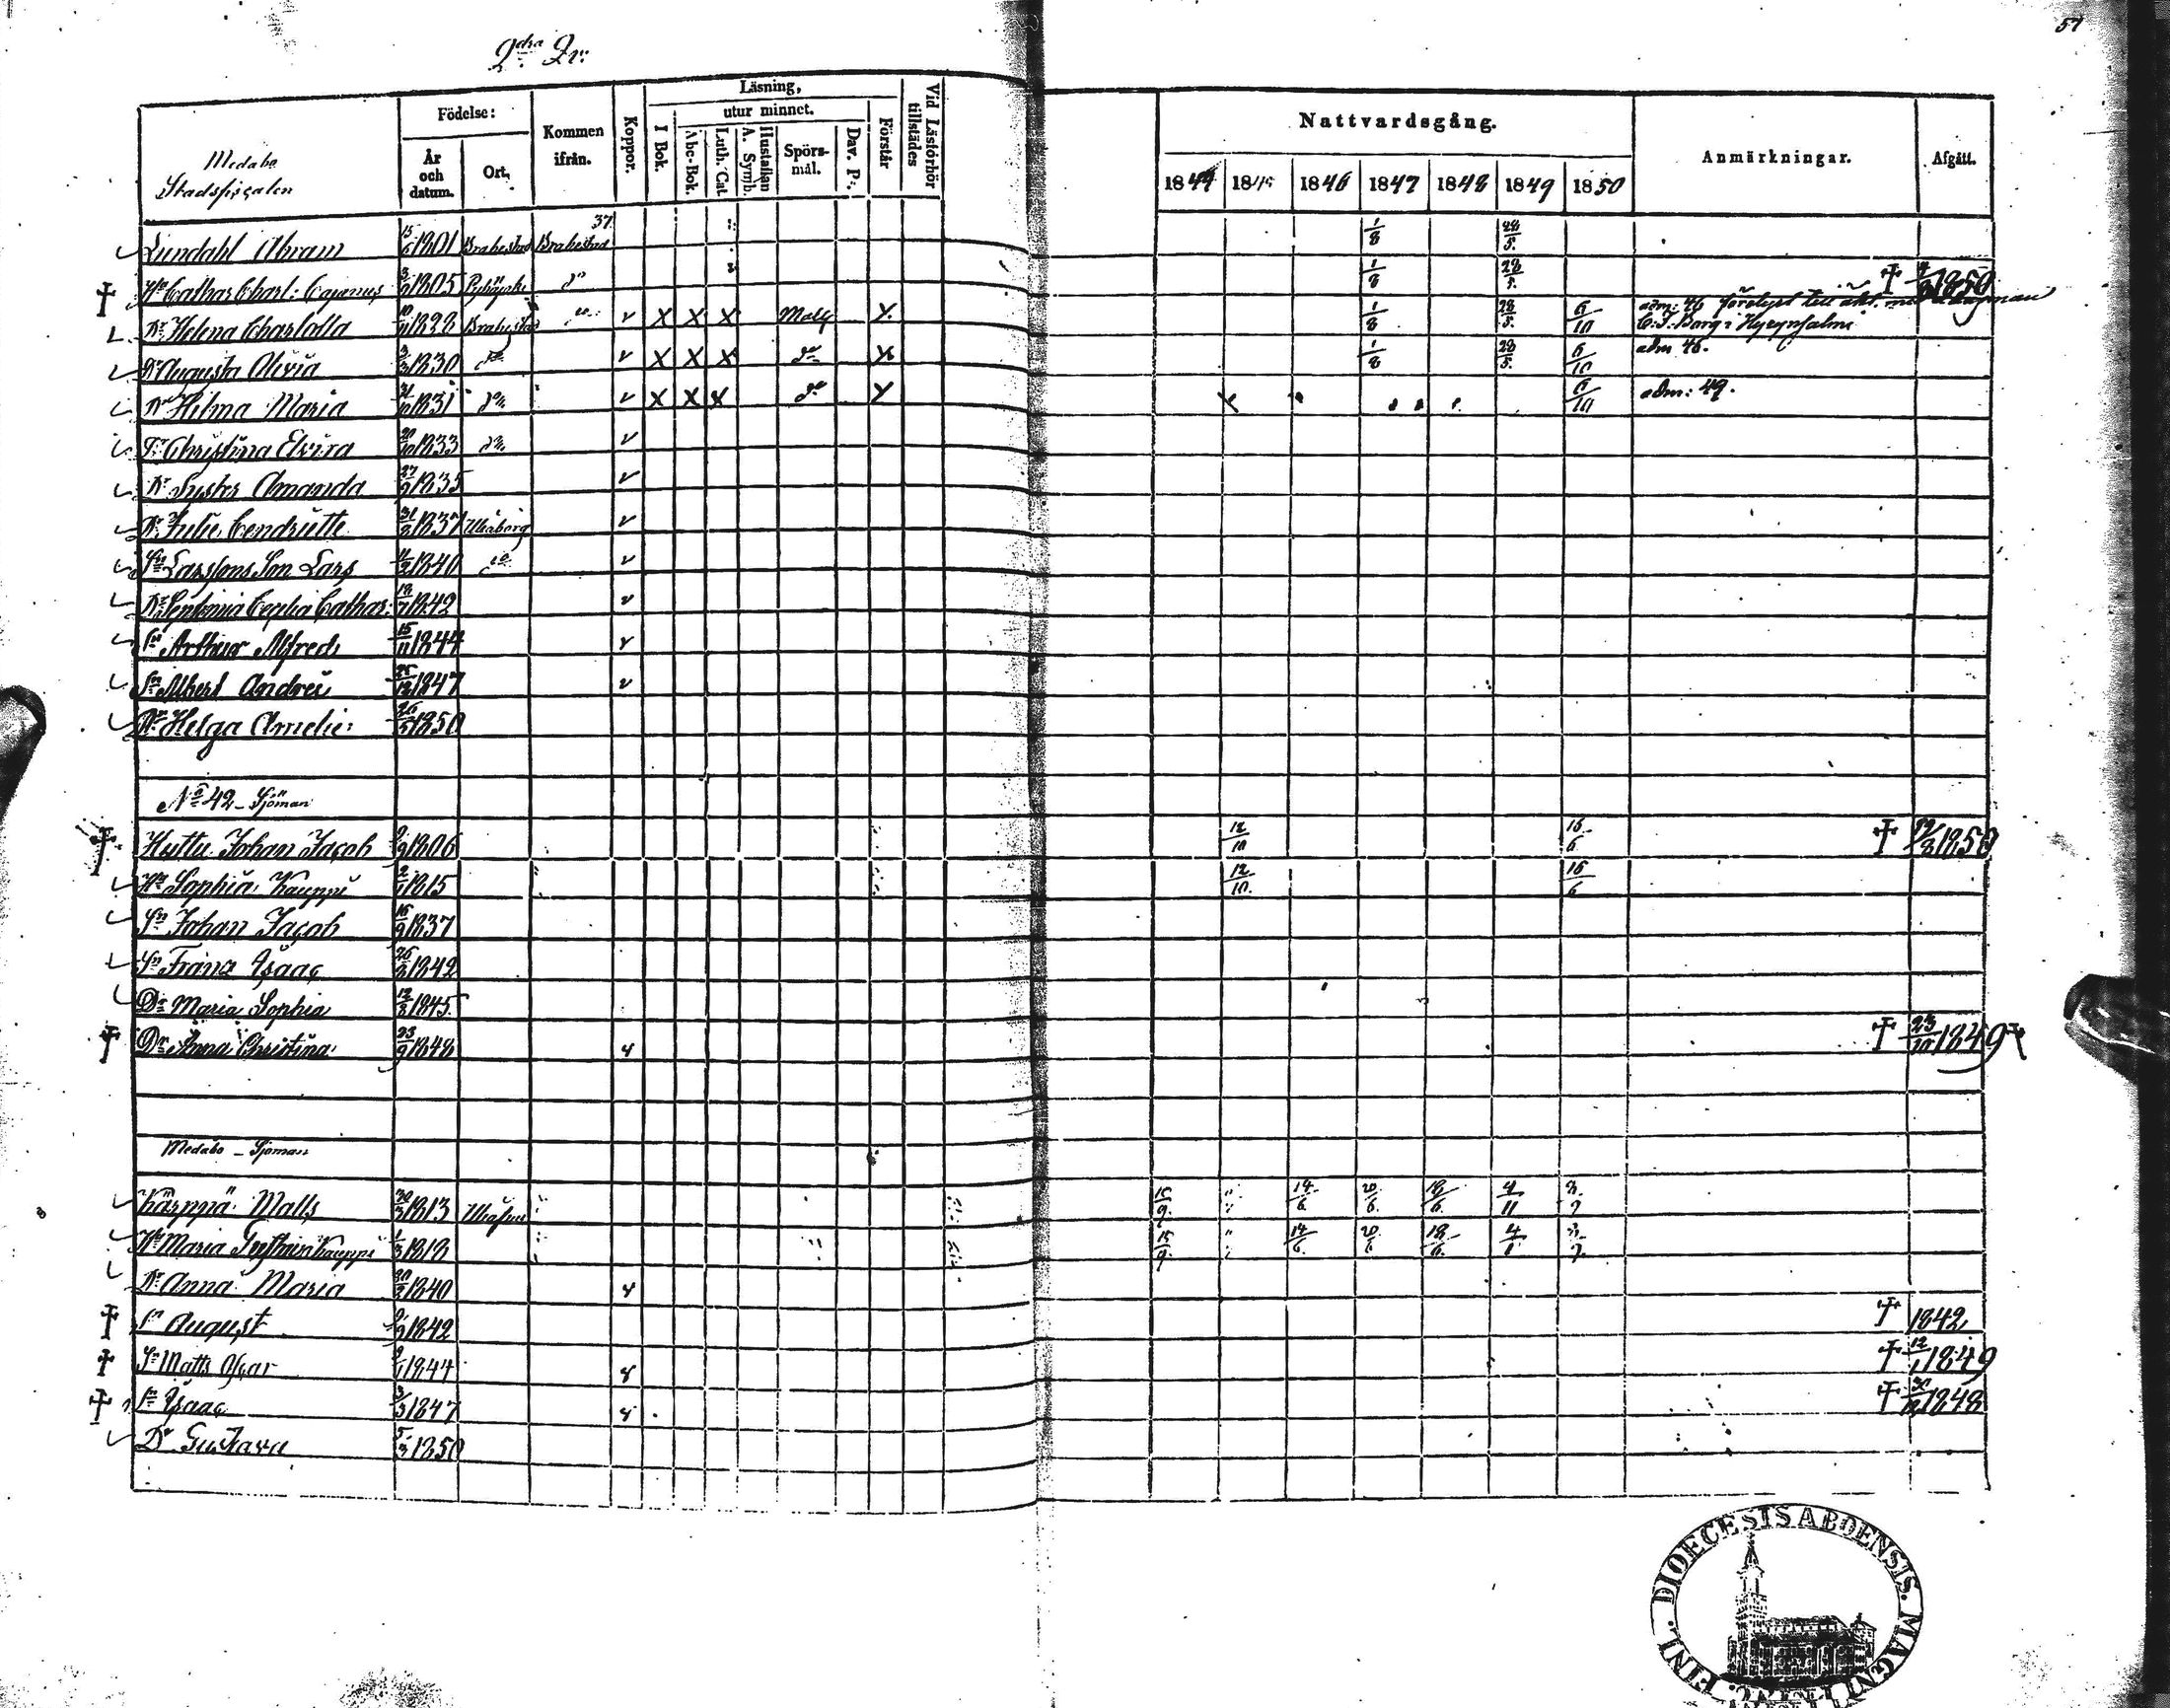 57
2dra Qr:
Medabo
Stadsfiscalen
Födelse:
År och datum.
Ort.
Kommen ifrån.
Koppor.
Läsning,
utur minnet.
I Bok.
Abc-Bok.
Luth. Cat.
Hustaflan A. Symb.
Spörsmål.
Dav. Ps.
Förstår
Vid Läsförhör tillstädes
Nattvardsgång.
1844 1845 1846 1847 1848 1849 1850
Anmärkningar.
Afgått.
Lundahl Abram 15/6 1801 Brahestad Brahestad 37 1/8 28/5
Hu Cathar. Charl: Cajanus 1805 Pyhäjoki do 1/8 28/5 † 1850
Dr Helena Charlotta 1828 Brahestad do v X X X X 1/8 28/5 6/10 adm: 46
C. J. Borg i
Dr Augusta Olivia 3/3 1830 do v X X X do X 1/8 28/5 6/10 adm 46.
Dr Hilma Maria 31/10 1831 do v X X X do X 6/10 adm: 49.
Dr Christina Elvira 20/10 1833 do v
Dr Syster Amanda 1835 v
Dr Julie Hendriette 31/8 1837 Uleåborg v
Sn Larssons Son Lars 1840 do v
Dr Cecilia Cathar: 1842 v
Sn Arthur Alfred 15/11 1844 v
Sn Albert Andrei 25/12 1847 v
Dr Helga Amelie 26/5 1850
No 42 - Sjöman
† Huttu Johan Jacob 9/9 1806 12/10 16/6 † 1850
Hu Sophia Kauppi 2/1 1815 12/10 16/6
Sn Johan Jacob 16/9 1837
Sn Frans Isaac 26/8 1842
Dr Maria Sophia 12/8 1845
† Dr Anna Christina 23/9 1848 v † 23/10 1849 †
Medabo - Sjöman
Kärppä Matts 30/3 1813 15/9 14/6 20/6 18/6 4/11
Hu Maria Kauppi 1/3 1818 15/9 14/6 18/6
Dr Anna Maria 1840 v
† Sn August 1842 † 1842
† Sn Matts Oscar 1844 v † 12/1 1849
† Sn Isaac 3/3 1847 v † 1848
Dr Gustava 5/3 1850
FINL. DIOECESIS ABOENSIS. MAGNI